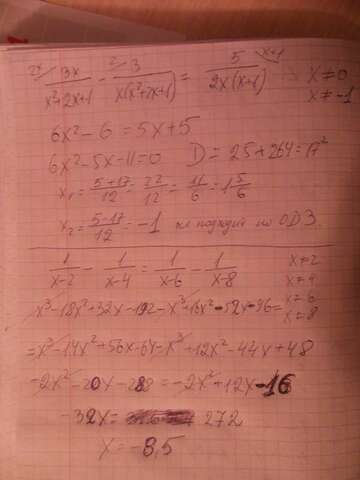 2x 3x/(x²+2x+1) - 2 3/(x(x²+2x+1)) = 5 x+1/(2x(x+1)) x≠0
x≠-1
6x²-6=5x+5
6x²-5x-11=0 D=25+264=17²
x₁=(5+17)/12=22/12=11/6=1 5/6
x₂=(5-17)/12=-1 не подходит по ОДЗ.
1/(x-2) - 1/(x-4) = 1/(x-6) - 1/(x-8) x≠2
x≠4
x≠6
x≠8
x³-18x²+32x-192-x³+16x²-52x-96=
=x³-14x²+56x-64-x³+12x²-44x+48
-2x²-20x-288=-2x²+12x-16
-32x= 272
x=-8,5